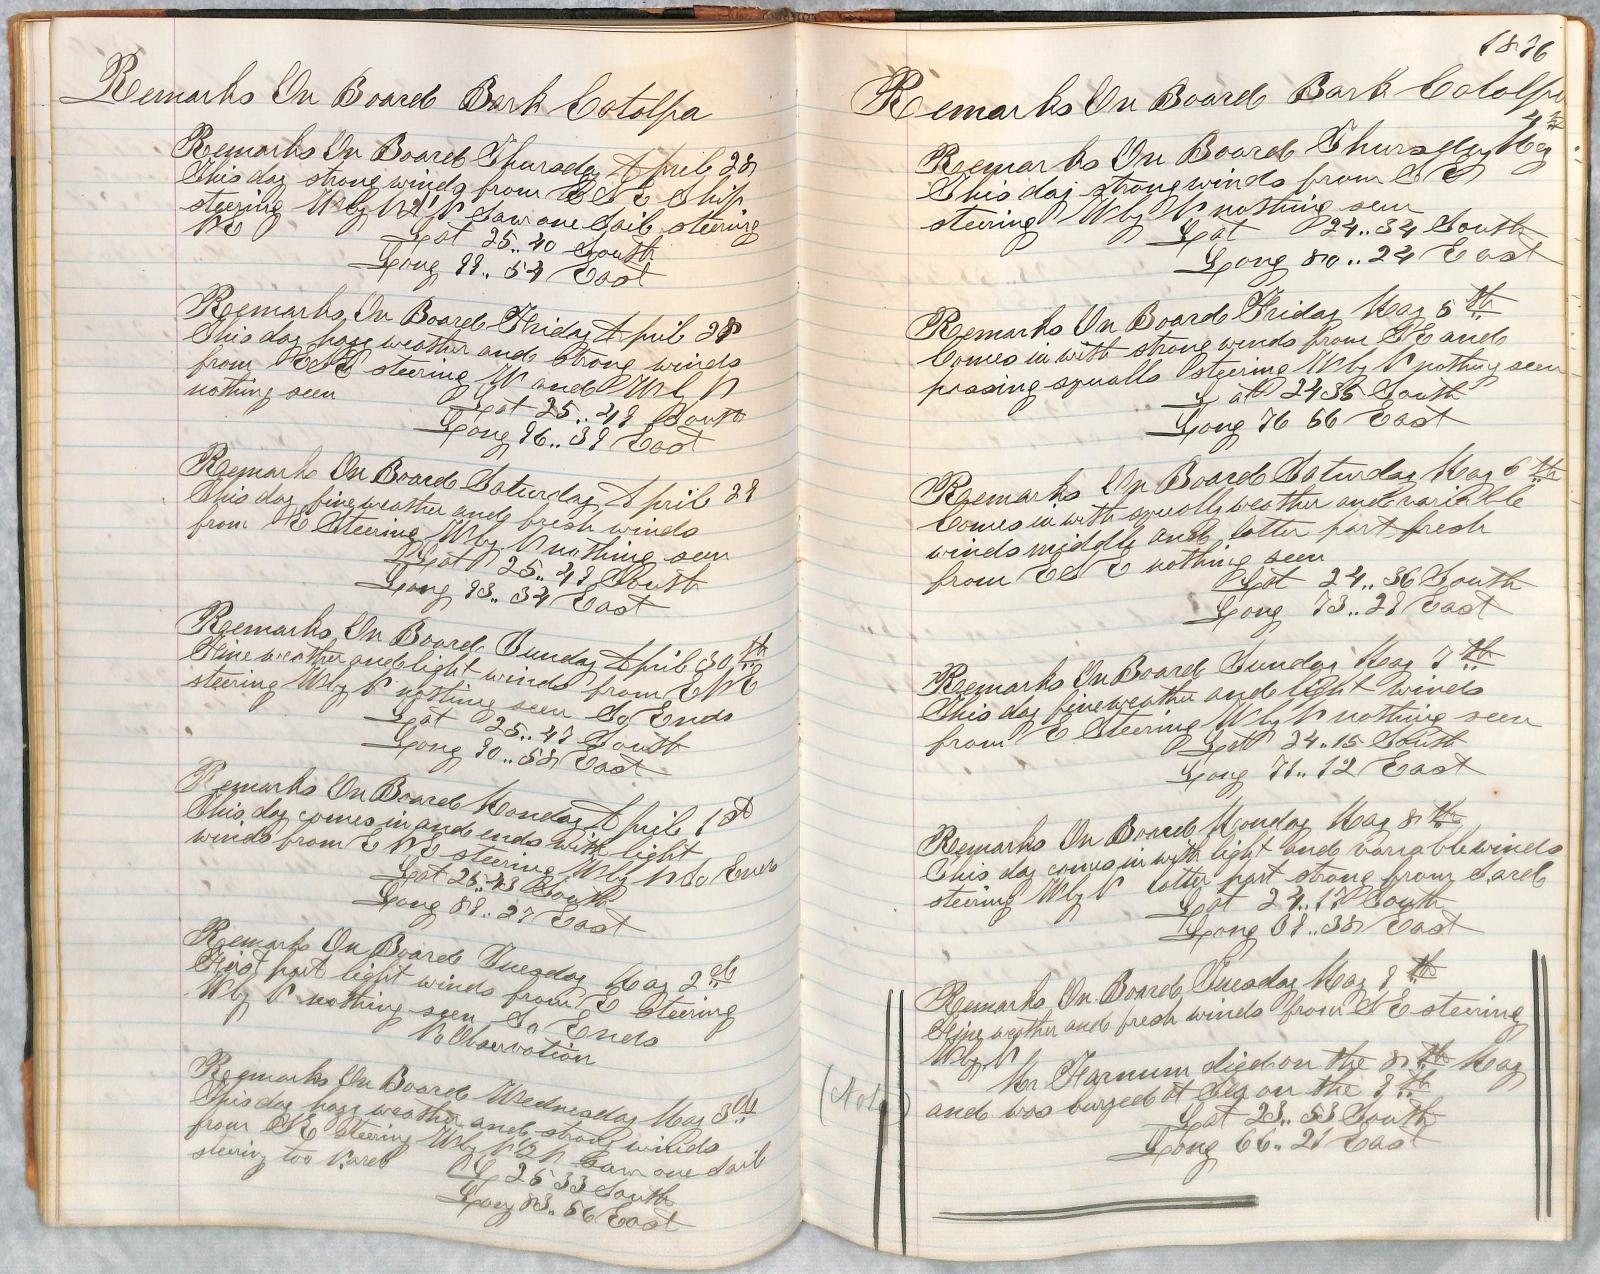 Remarks On Board Bark Catalpa
Remarks On Board Thursday April 28
This day strong winds from ESE Ship
steering W by N ½ N Saw one Sail steering
NE
Lat 25..40 South
Long 99..54 East
Remarks On Board Friday April 28
This day hazy weather and Strong winds
from ENE steering W and W by N
nothing seen
Lat 25..49 South
Long 96..39 East
Remarks On Board Saturday April 29
This day fine weather and fresh winds
from E Steering W by N nothing seen
Lat 25..49 South
Long 93..34 East
Remarks On Board Sunday April 30th
Fine weather and light winds from ENE
steering W by N nothing seen So Ends
Lat 25..47 South
Long 90..58 East
Remarks On Board Monday April 1st
This day comes in and ends with light
winds from ENE steering W by N So Ends
Lat 25..43 South
Long 89..27 East
Remarks On Board Tuesday May 2d
First part light winds from E steering
W by N nothing seen So Ends
No Observation
Remarks On Board Wednesday May 3d
This day hazy weather and strong winds
from NE steering W by N ½ N Saw one Sail
steering too N.ard
L 25 33 South
Long 83..56 East
1876
Remarks On Board Bark Catalpa
Remarks On Board Thursday May 4th
This day strong winds from SE
steering W by N nothing seen
Lat 24..34 South
Long 80..24 East
Remarks On Board Friday May 5th
Comes in with strong winds from SE and
passing squalls steering W by N nothing seen
Lat 24 35 South
Long 76 56 East
Remarks On Board Saturday May 6th
Comes in with squally weather and variable
winds middle and latter part fresh
from ESE nothing seen
Lat 24..36 South
Long 73..29 East
Remarks On Board Sunday May 7th
This day fine weather and light winds
from E Steering W by N nothing seen
Lat 24..15 South
Long 71..12 East
Remarks On Board Monday May 8th
This day comes in with light and variable winds
steering W by N latter part strong from S.ard
Lat 24..17 South
Long 69..38 East
Remarks On Board Tuesday May 9th
Fine weather and fresh winds from SE steering
W by N
Mr Farnum died on the 8th May
and was buryed at Sea on the 9th
Lat 23..53 South
Long 66..21 East
(Note)